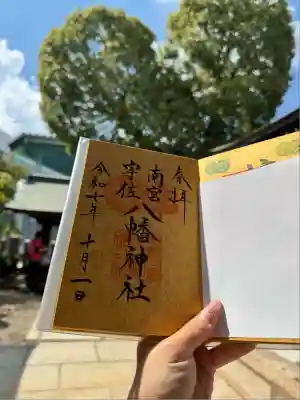 奉拝
南宮
宇佐
八幡神社
令和七年
十月一日